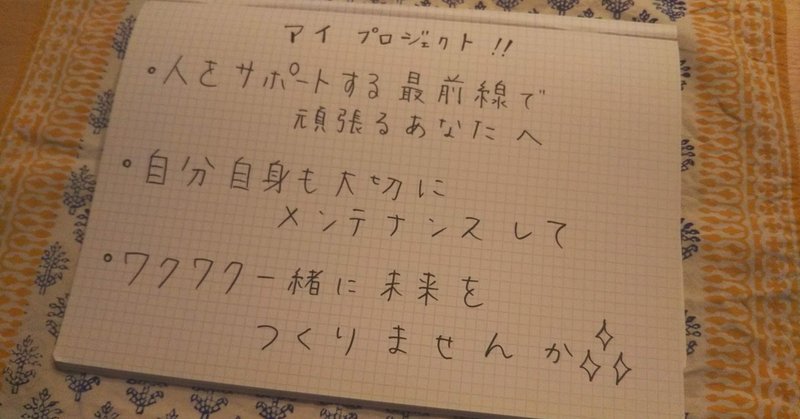 アイ プロジェクト!!
・人をサポートする最前線で
頑張るあなたへ
・自分自身も大切に
メンテナンスして
・ワクワク一緒に未来を
つくりませんか